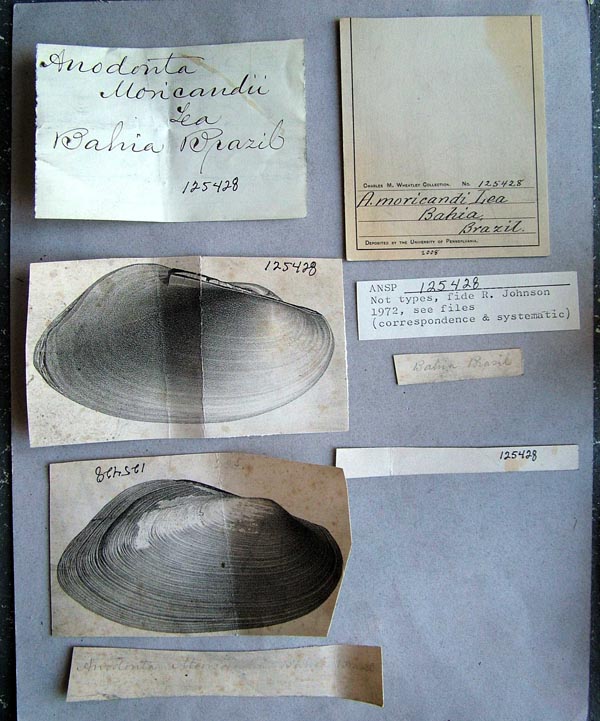 Anodonta
Moricandii
Lea
Bahia Brazil
125428
CHARLES M. WHEATLEY COLLECTION. No. 125428
A. moricandi Lea
Bahia,
Brazil.
DEPOSITED BY THE UNIVERSITY OF PENNSYLVANIA.
2008
125428
ANSP 125428
Not types, fide R. Johnson
1972, see files
(correspondence & systematic)
Bahia Brazil
125428
125428
Anodonta Brazil